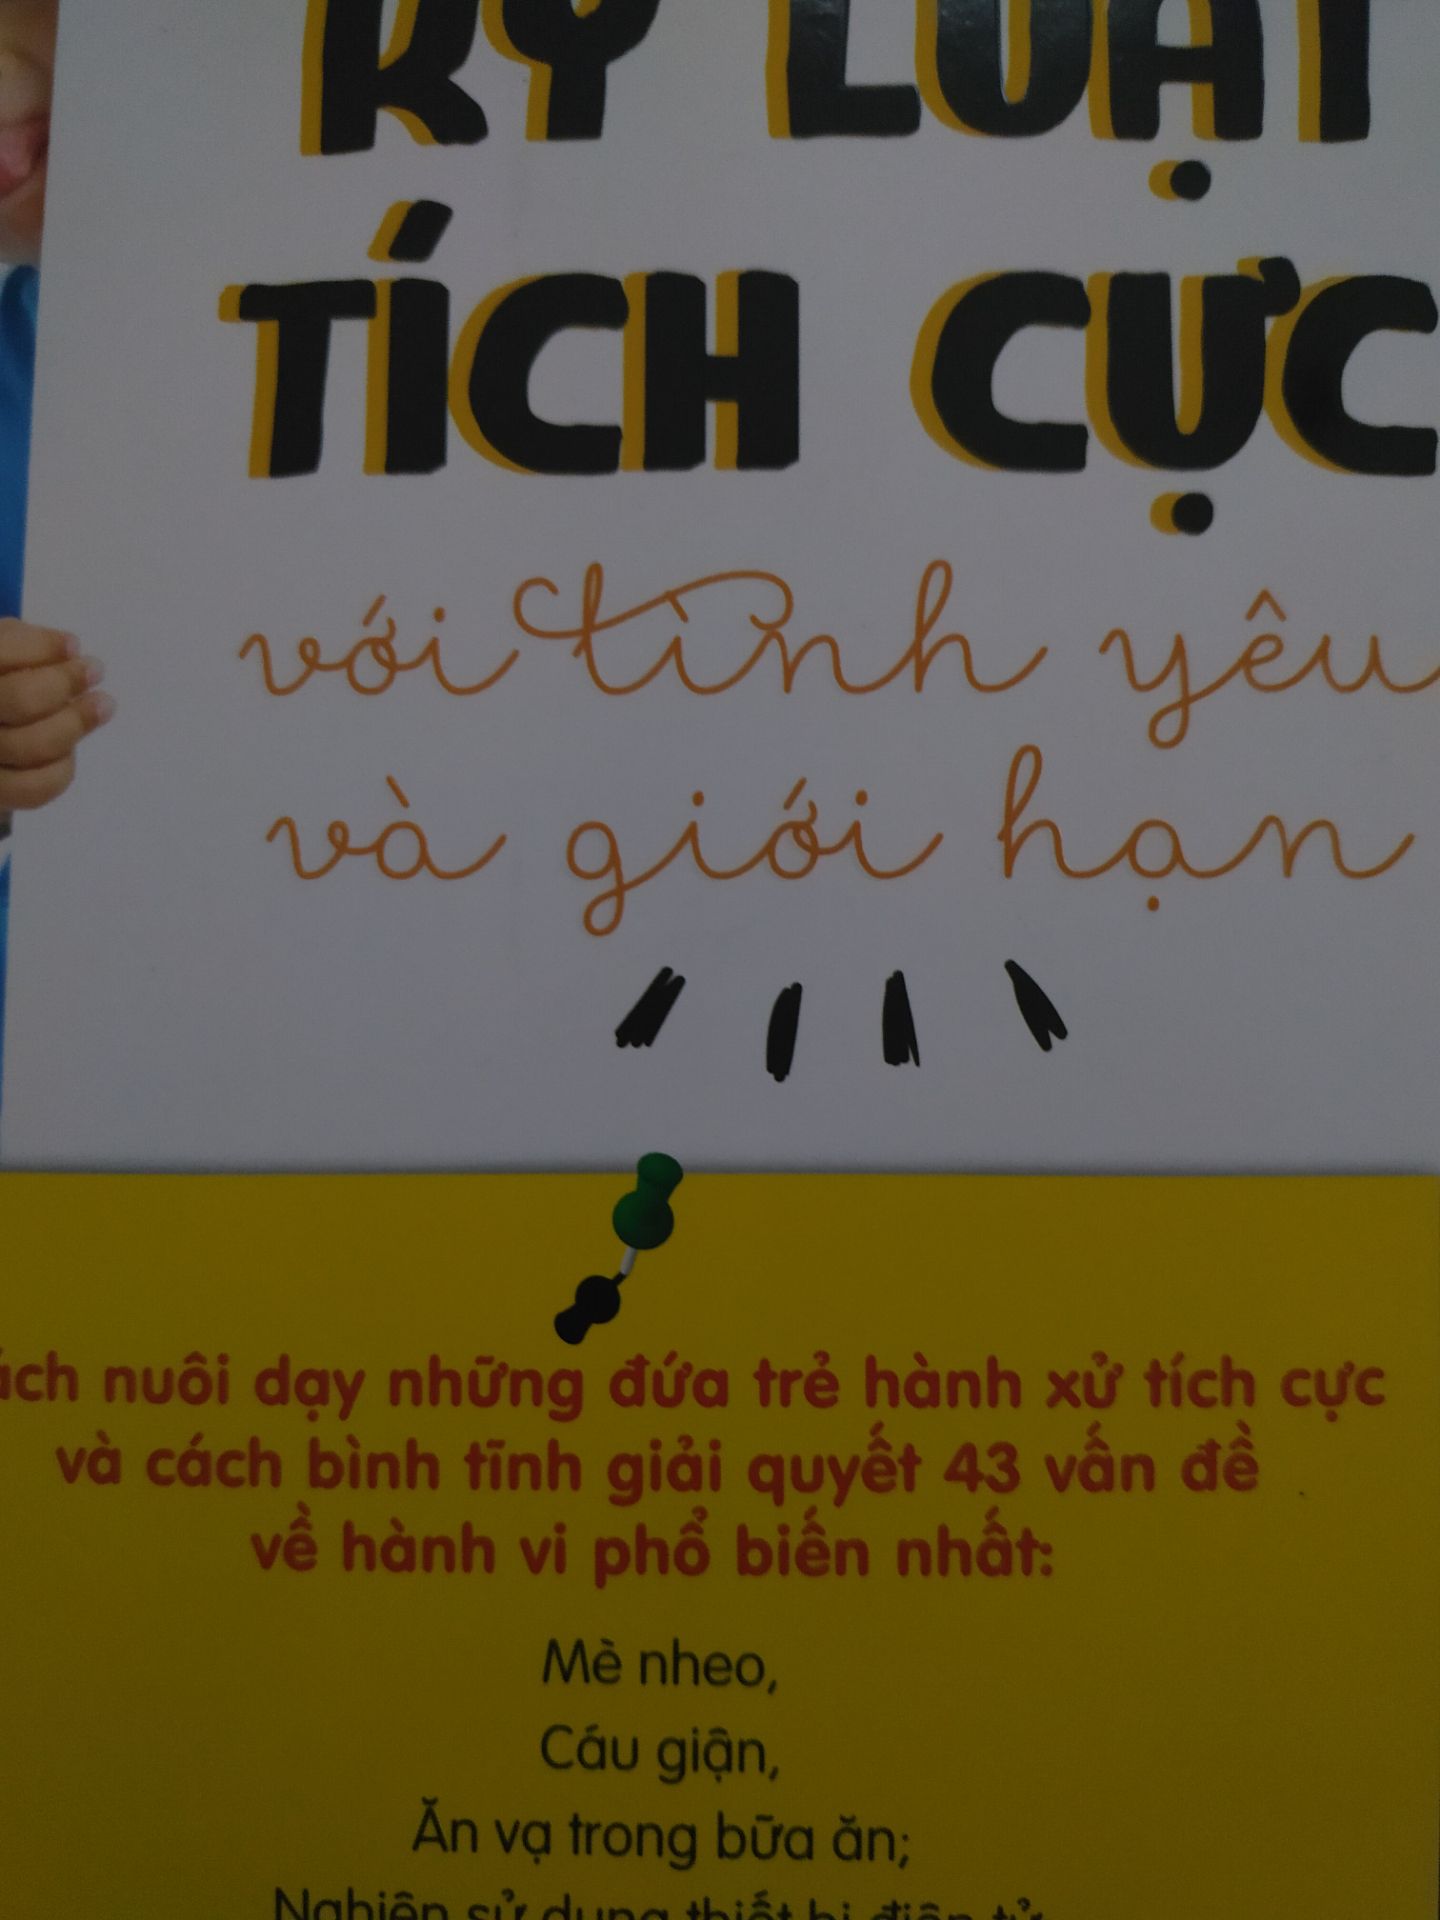 KỶ LUẬT
TÍCH CỰC
với tình yêu
và giới hạn
ách nuôi dạy những đứa trẻ hành xử tích cực
và cách bình tĩnh giải quyết 43 vấn đề
về hành vi phổ biến nhất:
Mè nheo,
Cáu giận,
Ăn vạ trong bữa ăn;
Nghiện sử dụng thiết bị điện tử